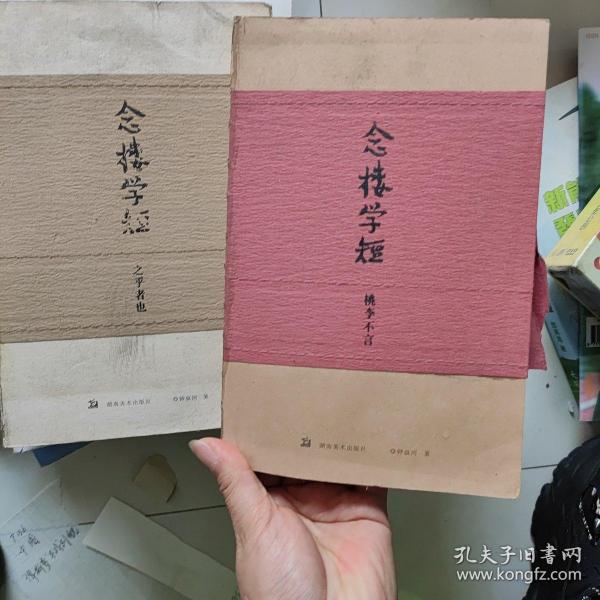 念楼学短
之乎者也
湖南美术出版社
钟叔河 著
念楼学短
桃李不言
湖南美术出版社
钟叔河 著
孔夫子旧书网
www.kongfz.com